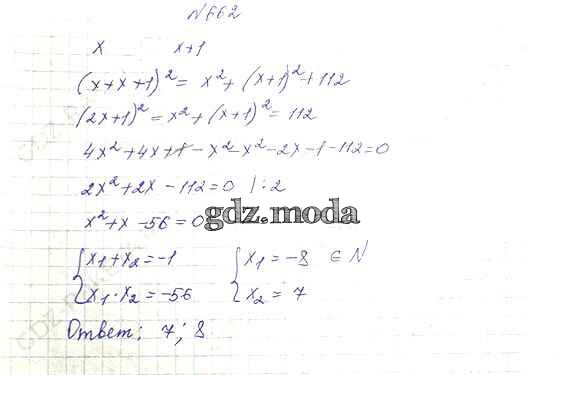 N662
x x+1
(x+x+1)² = x²+(x+1)²+112
(2x+1)² = x²+(x+1)² = 112
4x²+4x+1-x²-x²-2x-1-112=0
2x²+2x-112=0 |:2
x²+x-56=0
gdz.moda
x₁+x₂=-1 x₁=-8 ∈ N
x₁·x₂=-56 x₂=7
Ответ: 7; 8